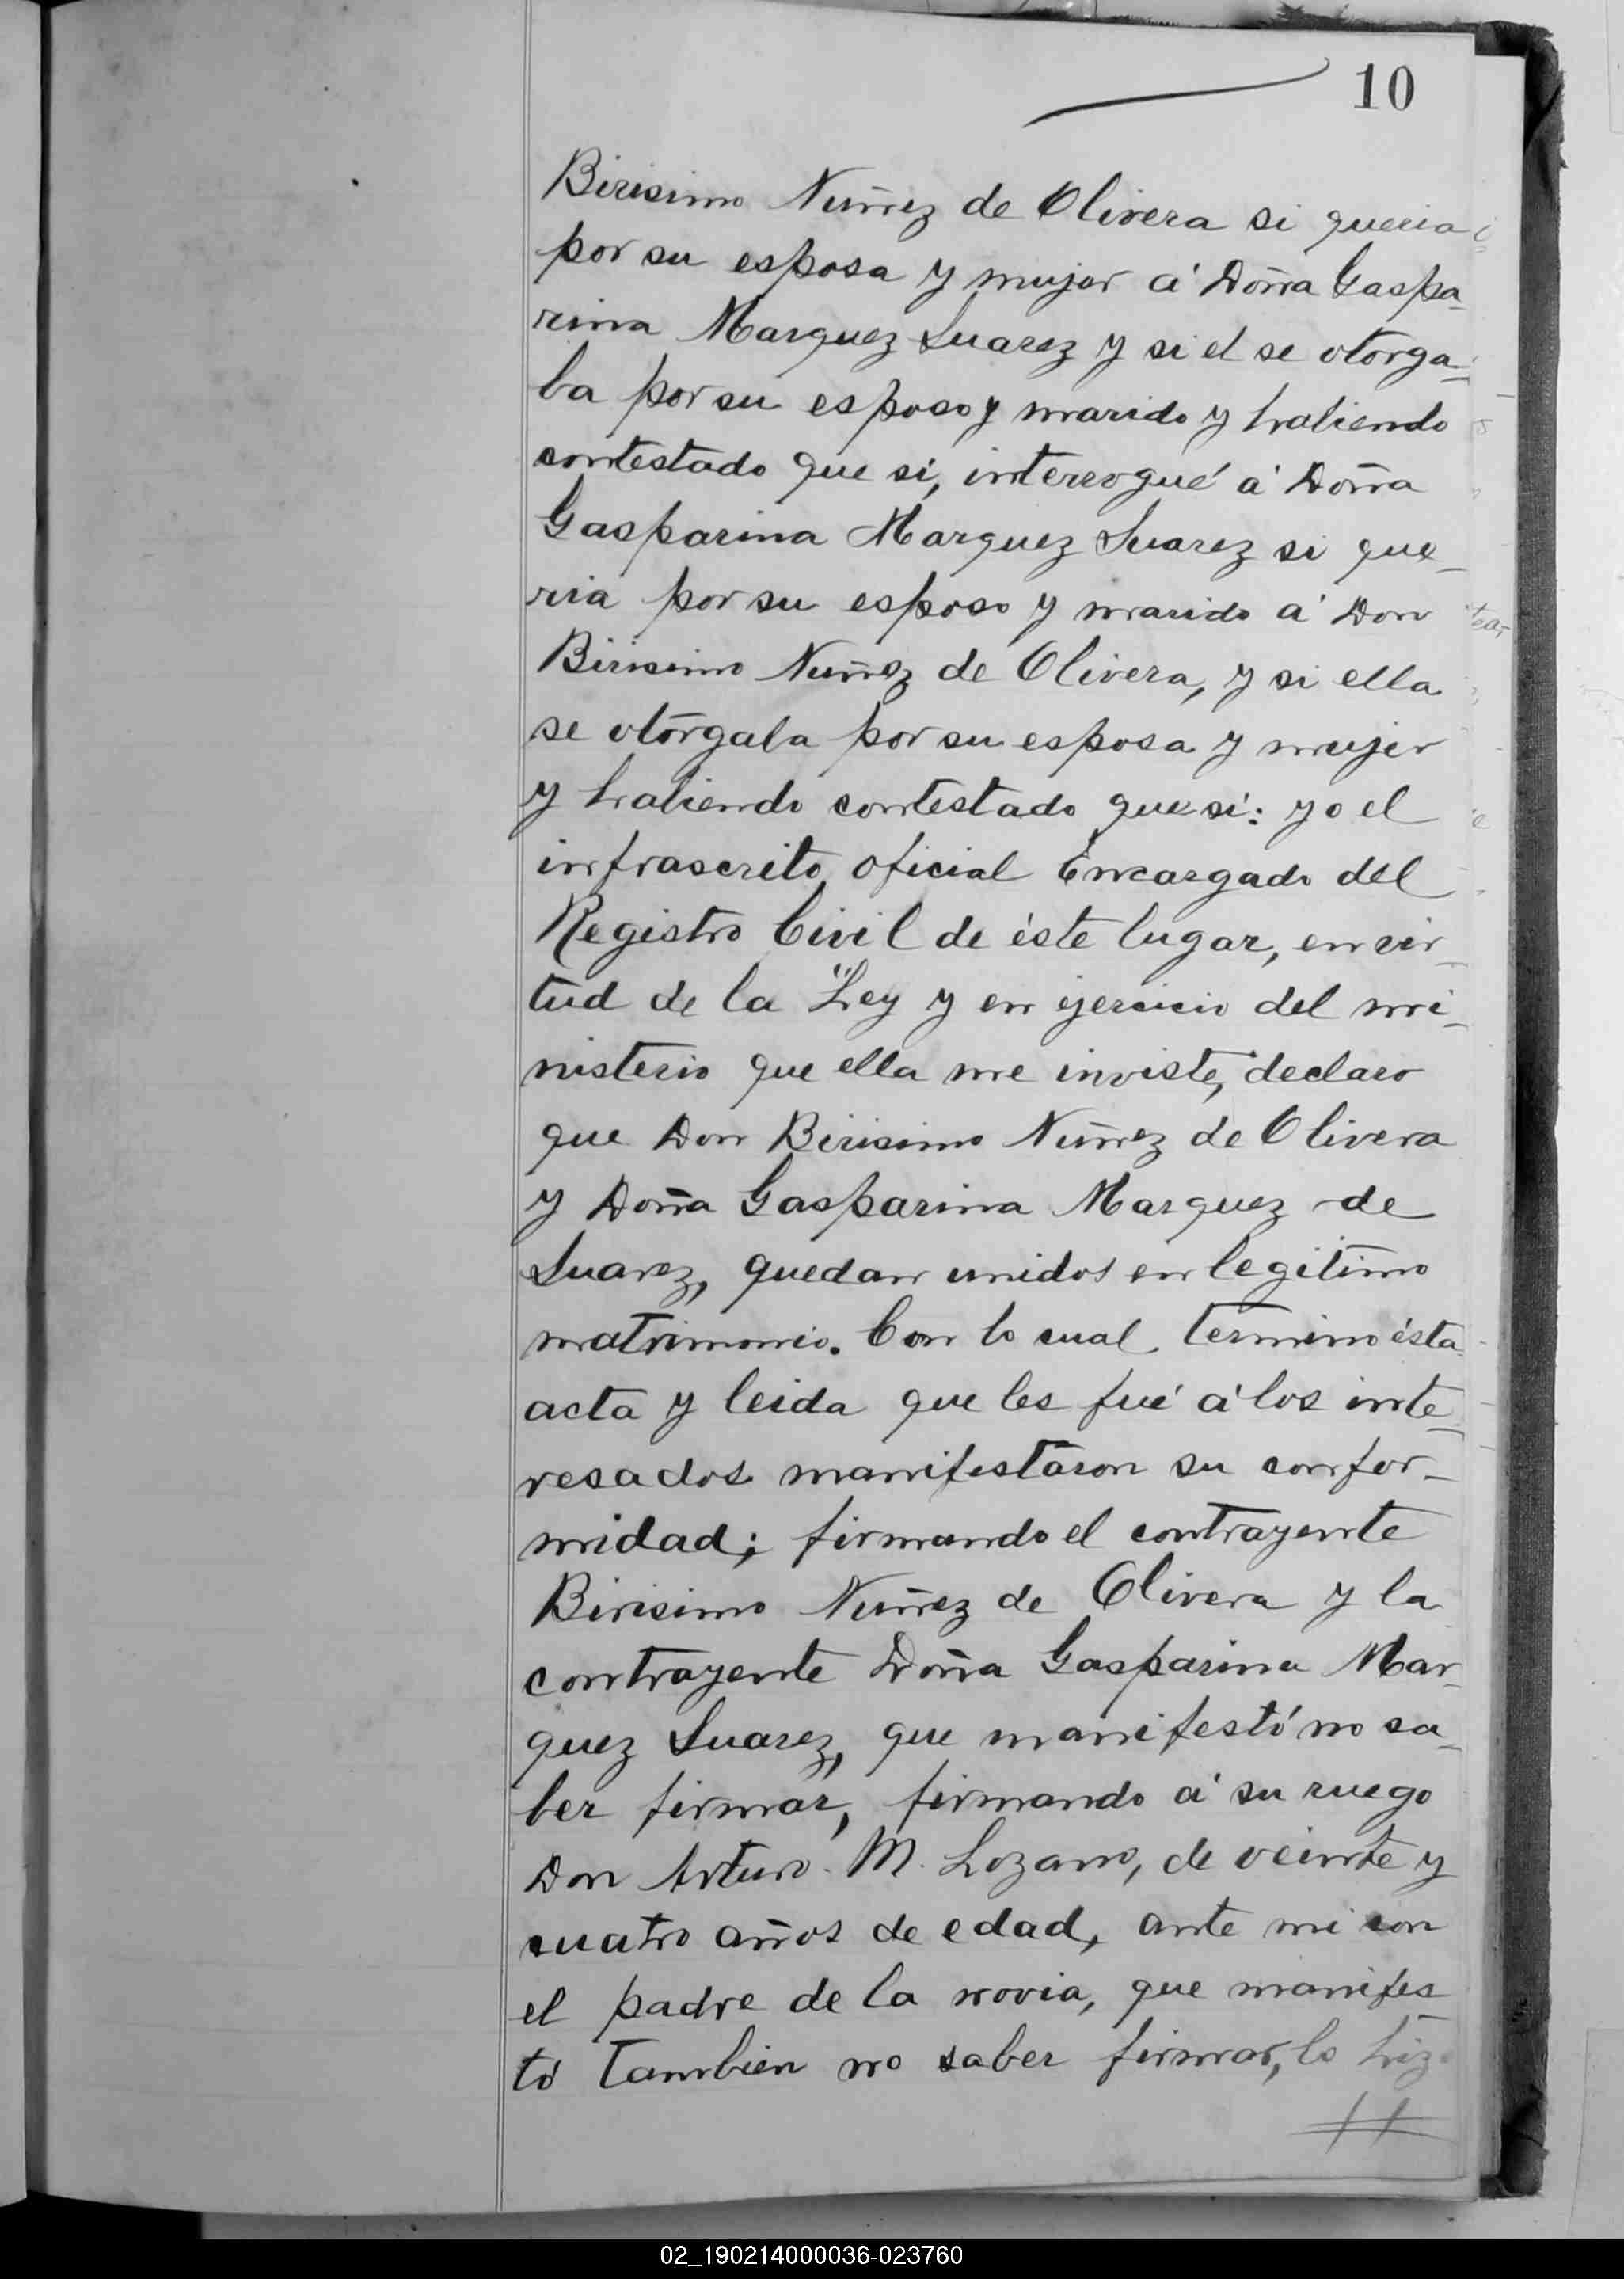 10
Birisimo Nuñez de Olivera si queria
por su esposa y mujer á Doña Gaspa-
rina Marquez Suarez y si el se otorga-
ba por su esposo y marido y habiendo
contestado que si, interrogué á Doña
Gasparina Marquez Suarez si que-
ria por su esposo y marido á Don
Birisimo Nuñez de Olivera, y si ella
se otorgaba por su esposa y mujer
y habiendo contestado que si: yo el
infrascrito oficial Encargado del
Registro Civil de éste lugar, en vir-
tud de la Ley y en ejercicio del mi-
nisterio que ella me inviste, declaro
que Don Birisimo Nuñez de Olivera
y Doña Gasparina Marquez de
Suarez, quedan unidos en legitimo
matrimonio. Con lo cual termino ésta
acta y leida que les fué á los inte-
resados manifestaron su confor-
midad; firmando el contrayente
Birisimo Nuñez de Olivera y la
contrayente Doña Gasparina Mar-
quez Suarez, que manifestó no sa-
ber firmar, firmando á su ruego
Don Arturo M. Lozano, de veinte y
cuatro años de edad, ante mi con
el padre de la novia, que manifes-
tó tambien no saber firmar, lo hizo
02_190214000036-023760